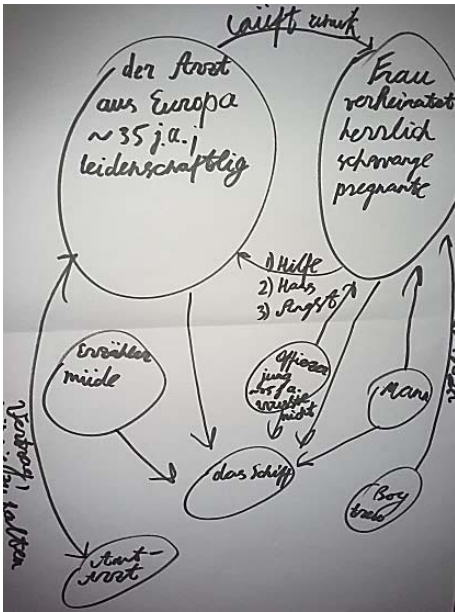 läuft zurück
der Arzt
aus Europa
~35 j.a.j
leidenschaftlig
Frau
verheiratet
herrlich
schwange
pregnante
1) Hilfe
2) Hass
3) Angst
Erzähler
müde
Offizier
jung
~25 j.a.
wusste
nicht
Mann
das Schiff
Boy
treu
Amt-
Arzt
Vertrag,
halten